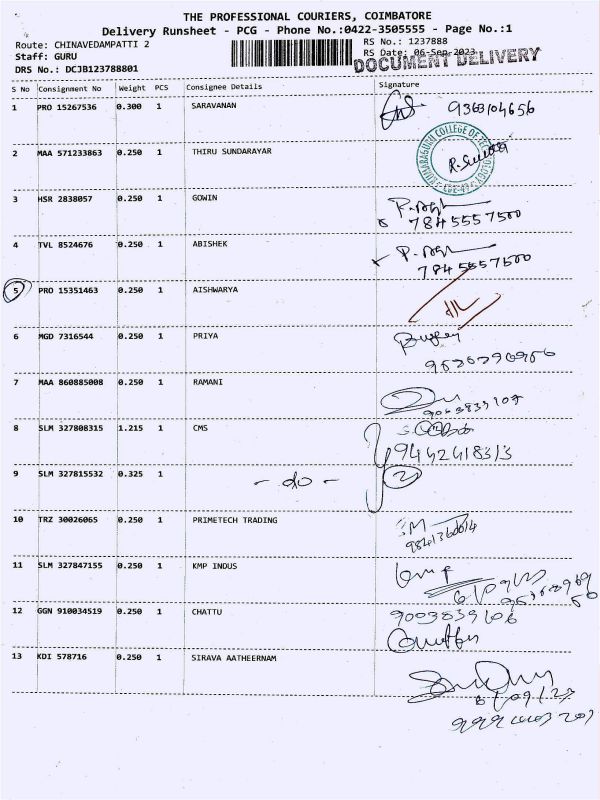 THE PROFESSIONAL COURIERS, COIMBATORE
Delivery Runsheet - PCG - Phone No.:0422-3505555 - Page No.:1
Route: CHINAVEDAMPATTI 2
RS No.: 1237888
Staff: GURU
RS Date: 06-Sep-2023
DOCUMENT DELIVERY
DRS No.: DCJB123788801
S No Consignment No Weight PCS Consignee Details Signature
1 PRO 15267536 0.300 1 SARAVANAN
9363104656
2 MAA 571233863 0.250 1 THIRU SUNDARAYAR
COLLEGE OF
3 HSR 2838057 0.250 1 GOWIN
7845557500
4 TVL 8524676 0.250 1 ABISHEK
7845557500
5 PRO 15351463 0.250 1 AISHWARYA
6 MGD 7316544 0.250 1 PRIYA
7 MAA 860885008 0.250 1 RAMANI
8 SLM 327808315 1.215 1 CMS
9442418313
9 SLM 327815532 0.325 1 - do - 2
10 TRZ 30026065 0.250 1 PRIMETECH TRADING
11 SLM 327847155 0.250 1 KMP INDUS
12 GGN 910034519 0.250 1 CHATTU
9003839106
13 KDI 578716 0.250 1 SIRAVA AATHEERNAM